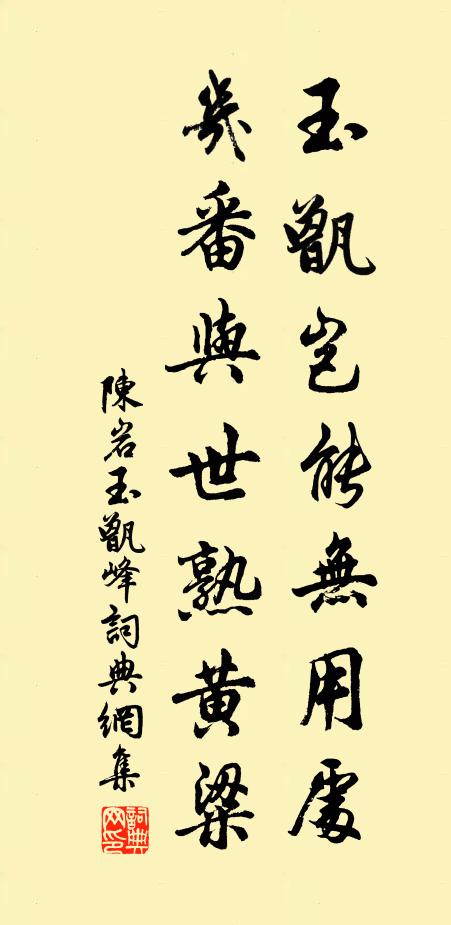 玉甑豈能無用處
幾番與世熟黄粱
陳岩玉甑峰詞典網集
詞典
网印